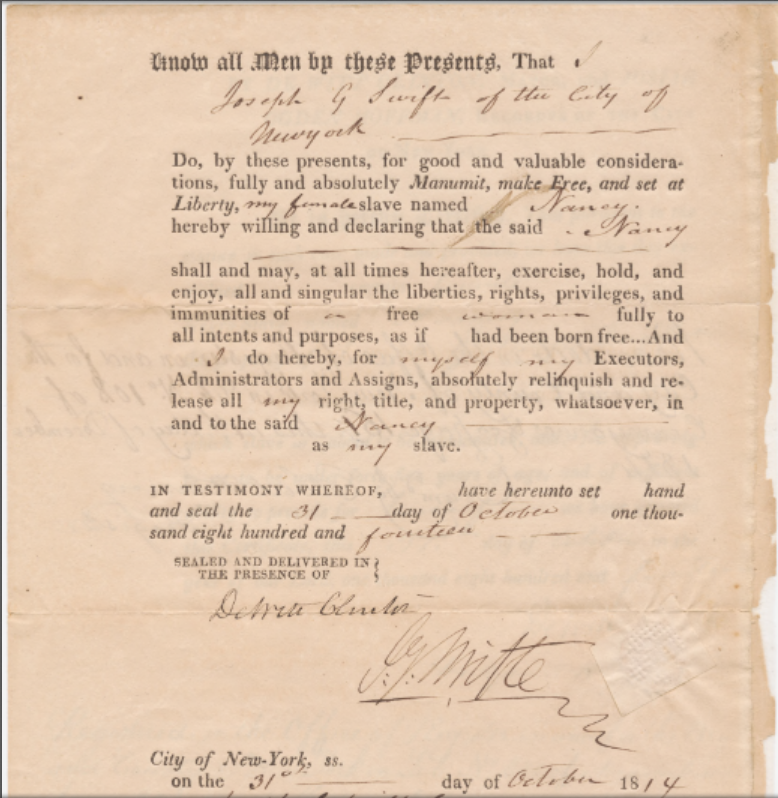 Know all Men by these Presents, That I
Joseph G Swift of the City of
Newyork
Do, by these presents, for good and valuable considera-
tions, fully and absolutely Manumit, make Free, and set at
Liberty, my female slave named Nancy.
hereby willing and declaring that the said Nancy
shall and may, at all times hereafter, exercise, hold, and
enjoy, all and singular the liberties, rights, privileges, and
immunities of a free woman fully to
all intents and purposes, as if had been born free...And
I do hereby, for myself my Executors,
Administrators and Assigns, absolutely relinquish and re-
lease all my right, title, and property, whatsoever, in
and to the said Nancy
as my slave.
IN TESTIMONY WHEREOF, have hereunto set hand
and seal the 31 day of October one thou-
sand eight hundred and fourteen
SEALED AND DELIVERED IN
THE PRESENCE OF
DeWitt Clinton
J. G. Swift
City of New-York, ss.
on the 31st day of October 1814